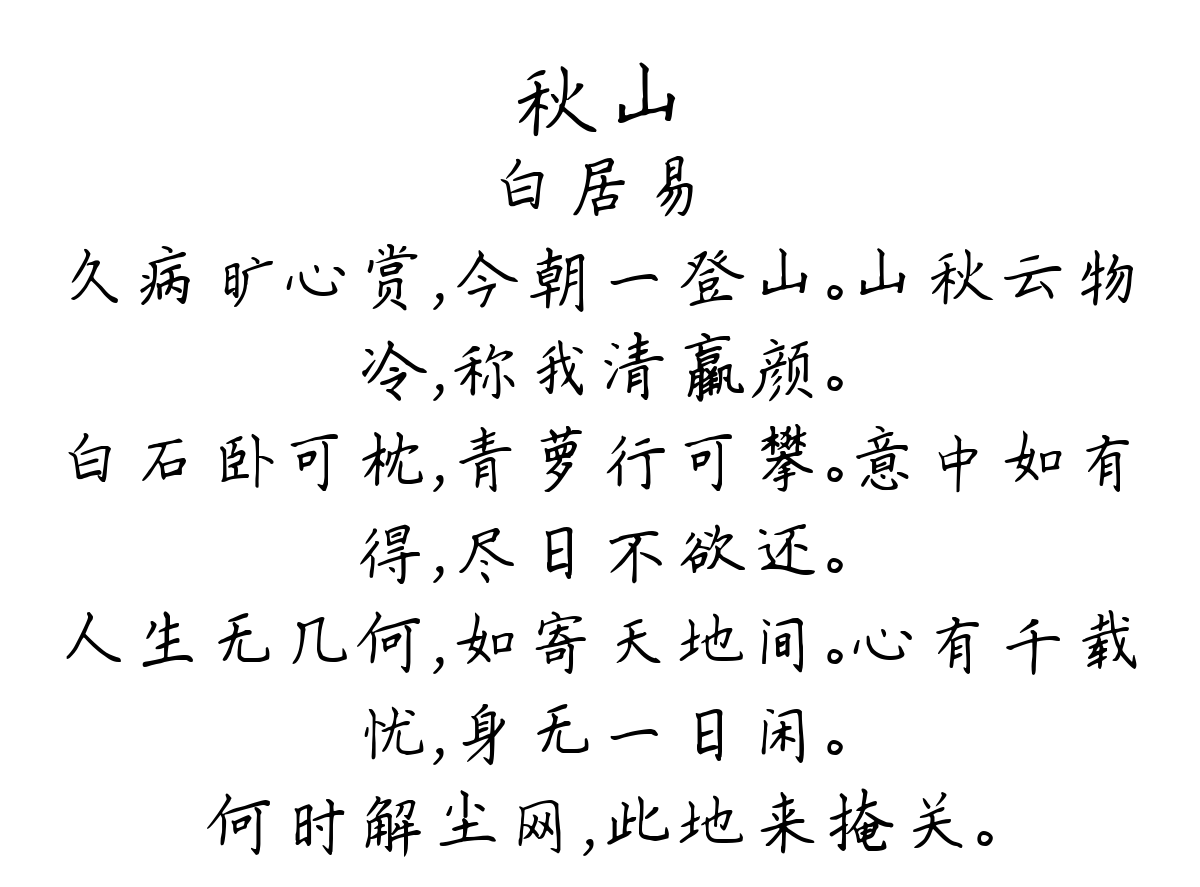 秋山
白居易
久病旷心赏,今朝一登山。山秋云物
冷,称我清羸颜。
白石卧可枕,青萝行可攀。意中如有
得,尽日不欲还。
人生无几何,如寄天地间。心有千载
忧,身无一日闲。
何时解尘网,此地来掩关。